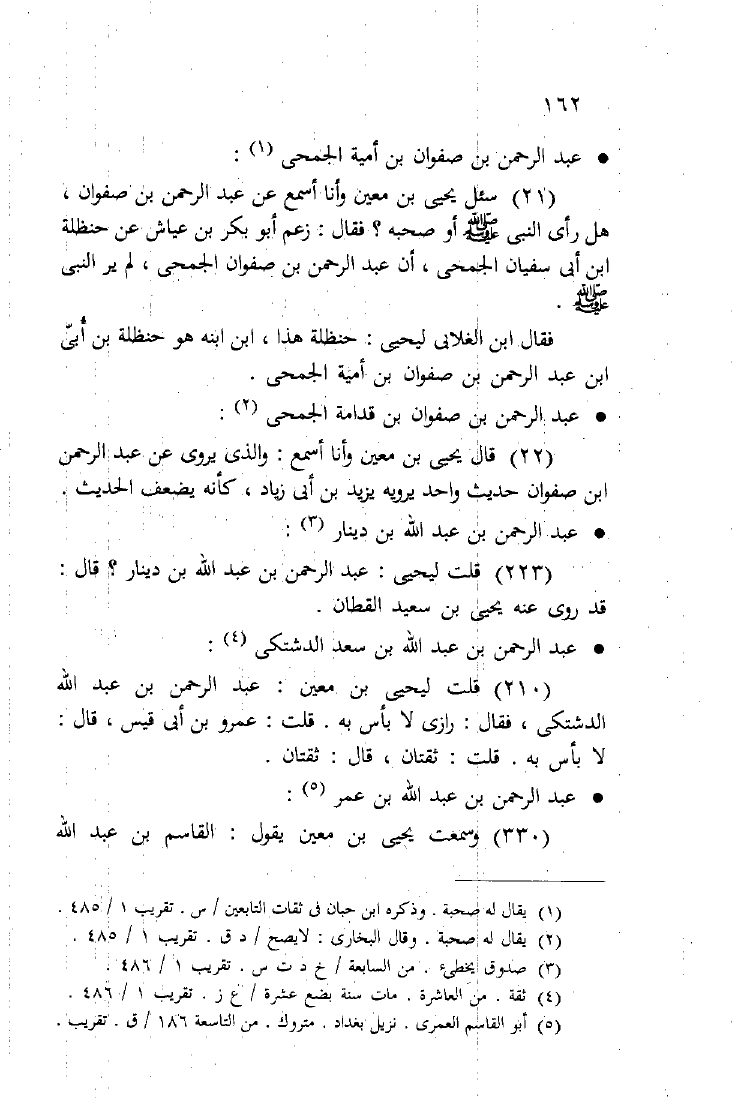 ١٦٢
● عبد الرحمن بن صفوان بن أمية الجمحى (١) :
(٢١) سئل يحيى بن معين وأنا أسمع عن عبد الرحمن بن صفوان ،
هل رأى النبى ﷺ أو صحبه ؟ فقال : زعم أبو بكر بن عياش عن حنظلة
ابن أبى سفيان الجمحى ، أن عبد الرحمن بن صفوان الجمحى ، لم ير النبى
ﷺ .
فقال ابن الغلابى ليحيى : حنظلة هذا ، ابن ابنه هو حنظلة بن أبىّ
ابن عبد الرحمن بن صفوان بن أمية الجمحى .
● عبد الرحمن بن صفوان بن قدامة الجمحى (٢) :
(٢٢) قال يحيى بن معين وأنا أسمع : والذى يروى عن عبد الرحمن
ابن صفوان حديث واحد يرويه يزيد بن أبى زياد ، كأنه يضعف الحديث .
● عبد الرحمن بن عبد الله بن دينار (٣) :
(٢٢٣) قلت ليحيى : عبد الرحمن بن عبد الله بن دينار ؟ قال :
قد روى عنه يحيى بن سعيد القطان .
● عبد الرحمن بن عبد الله بن سعد الدشتكى (٤) :
(٢١٠) قلت ليحيى بن معين : عبد الرحمن بن عبد الله
الدشتكى ، فقال : رازى لا بأس به . قلت : عمرو بن أبى قيس ، قال :
لا بأس به . قلت : ثقتان ، قال : ثقتان .
● عبد الرحمن بن عبد الله بن عمر (٥) :
(٣٣٠) وسمعت يحيى بن معين يقول : القاسم بن عبد الله
(١) يقال له صحبة . وذكره ابن حبان فى ثقات التابعين / س . تقريب ١ / ٤٨٥ .
(٢) يقال له صحبة . وقال البخارى : لايصح / د ق . تقريب ١ / ٤٨٥ .
(٣) صدوق يخطىء . من السابعة / خ د ت س . تقريب ١ / ٤٨٦ .
(٤) ثقة . من العاشرة . مات سنة بضع عشرة / ع ز . تقريب ١ / ٤٨٦ .
(٥) أبو القاسم العمرى . نزيل بغداد . متروك . من التاسعة ١٨٦ / ق . تقريب .